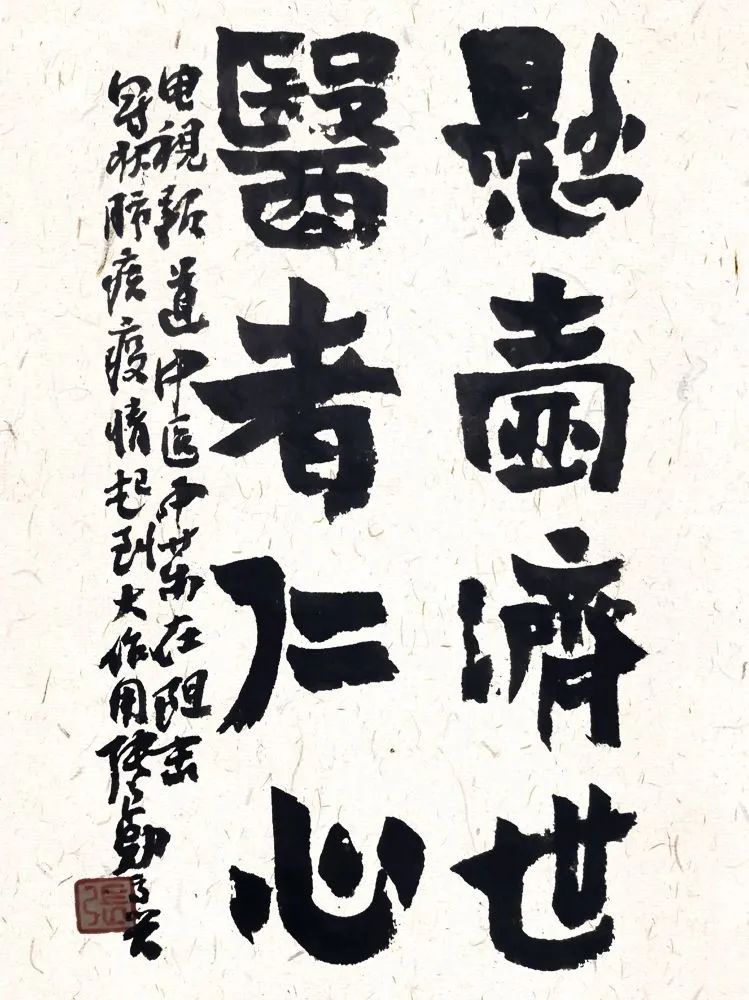 懸壺濟世
醫者仁心
电視報道中医中药在阻击
冠状肺炎疫情起到大作用
張